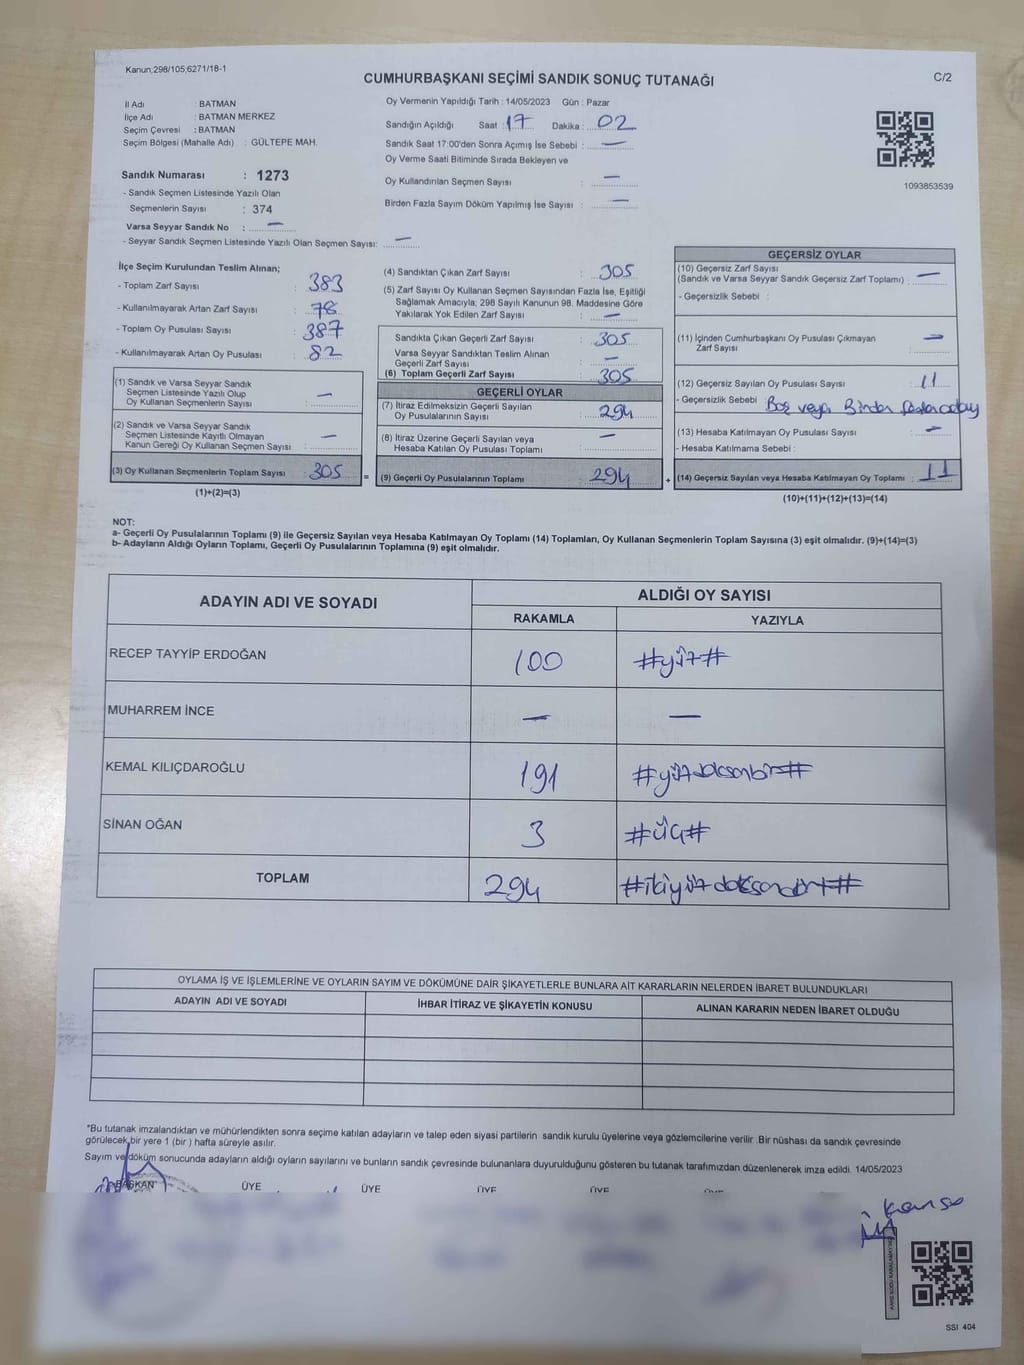 Kanun;298/105;6271/18-1
CUMHURBAŞKANI SEÇİMİ SANDIK SONUÇ TUTANAĞI
C/2
İl Adı : BATMAN
İlçe Adı : BATMAN MERKEZ
Seçim Çevresi : BATMAN
Seçim Bölgesi (Mahalle Adı) : GÜLTEPE MAH.
Sandık Numarası : 1273
- Sandık Seçmen Listesinde Yazılı Olan
Seçmenlerin Sayısı : 374
Varsa Seyyar Sandık No : —
- Seyyar Sandık Seçmen Listesinde Yazılı Olan Seçmen Sayısı: —
Oy Vermenin Yapıldığı Tarih : 14/05/2023 Gün : Pazar
Sandığın Açıldığı Saat : 17 Dakika : 02
Sandık Saat 17:00'den Sonra Açımış İse Sebebi : —
Oy Verme Saati Bitiminde Sırada Bekleyen ve
Oy Kullandırılan Seçmen Sayısı : —
Birden Fazla Sayım Döküm Yapılmış İse Sayısı : —
1093853539
İlçe Seçim Kurulundan Teslim Alınan;
- Toplam Zarf Sayısı : 383
- Kullanılmayarak Artan Zarf Sayısı : 78
- Toplam Oy Pusulası Sayısı : 387
- Kullanılmayarak Artan Oy Pusulası : 82
(1) Sandık ve Varsa Seyyar Sandık
Seçmen Listesinde Yazılı Olup
Oy Kullanan Seçmenlerin Sayısı : —
(2) Sandık ve Varsa Seyyar Sandık
Seçmen Listesinde Kayıtlı Olmayan
Kanun Gereği Oy Kullanan Seçmen Sayısı : —
(3) Oy Kullanan Seçmenlerin Toplam Sayısı : 305 =
(1)+(2)=(3)
(4) Sandıktan Çıkan Zarf Sayısı : 305
(5) Zarf Sayısı Oy Kullanan Seçmen Sayısından Fazla İse, Eşitliği
Sağlamak Amacıyla; 298 Sayılı Kanunun 98. Maddesine Göre
Yakılarak Yok Edilen Zarf Sayısı : —
Sandıkta Çıkan Geçerli Zarf Sayısı : 305
Varsa Seyyar Sandıktan Teslim Alınan
Geçerli Zarf Sayısı : —
(6) Toplam Geçerli Zarf Sayısı : 305
GEÇERLİ OYLAR
(7) İtiraz Edilmeksizin Geçerli Sayılan
Oy Pusulalarının Sayısı : 294
(8) İtiraz Üzerine Geçerli Sayılan veya
Hesaba Katılan Oy Pusulası Toplamı : —
(9) Geçerli Oy Pusulalarının Toplamı : 294 +
GEÇERSİZ OYLAR
(10) Geçersiz Zarf Sayısı
(Sandık ve Varsa Seyyar Sandık Geçersiz Zarf Toplamı) : —
- Geçersizlik Sebebi :
(11) İçinden Cumhurbaşkanı Oy Pusulası Çıkmayan
Zarf Sayısı : —
(12) Geçersiz Sayılan Oy Pusulası Sayısı : 11
- Geçersizlik Sebebi : Boş veya Birden fazla aday
(13) Hesaba Katılmayan Oy Pusulası Sayısı : —
- Hesaba Katılmama Sebebi :
(14) Geçersiz Sayılan veya Hesaba Katılmayan Oy Toplamı : 11
(10)+(11)+(12)+(13)=(14)
NOT:
a- Geçerli Oy Pusulalarının Toplamı (9) ile Geçersiz Sayılan veya Hesaba Katılmayan Oy Toplamı (14) Toplamları, Oy Kullanan Seçmenlerin Toplam Sayısına (3) eşit olmalıdır. (9)+(14)=(3)
b- Adayların Aldığı Oyların Toplamı, Geçerli Oy Pusulalarının Toplamına (9) eşit olmalıdır.
ADAYIN ADI VE SOYADI
ALDIĞI OY SAYISI
RAKAMLA YAZIYLA
RECEP TAYYİP ERDOĞAN 100 #yüz#
MUHARREM İNCE — —
KEMAL KILIÇDAROĞLU 191 #yüzdoksanbir#
SİNAN OĞAN 3 #üç#
TOPLAM 294 #ikiyüzdoksandört#
OYLAMA İŞ VE İŞLEMLERİNE VE OYLARIN SAYIM VE DÖKÜMÜNE DAİR ŞİKAYETLERLE BUNLARA AİT KARARLARIN NELERDEN İBARET BULUNDUKLARI
ADAYIN ADI VE SOYADI İHBAR İTİRAZ VE ŞİKAYETİN KONUSU ALINAN KARARIN NEDEN İBARET OLDUĞU
*Bu tutanak imzalandıktan ve mühürlendikten sonra seçime katılan adayların ve talep eden siyasi partilerin sandık kurulu üyelerine veya gözlemcilerine verilir .Bir nüshası da sandık çevresinde
görülecek bir yere 1 (bir ) hafta süreyle asılır.
Sayım ve döküm sonucunda adayların aldığı oyların sayılarını ve bunların sandık çevresinde bulunanlara duyurulduğunu gösteren bu tutanak tarafımızdan düzenlenerek imza edildi. 14/05/2023
BAŞKAN ÜYE ÜYE ÜYE ÜYE ÜYE
SSI 404